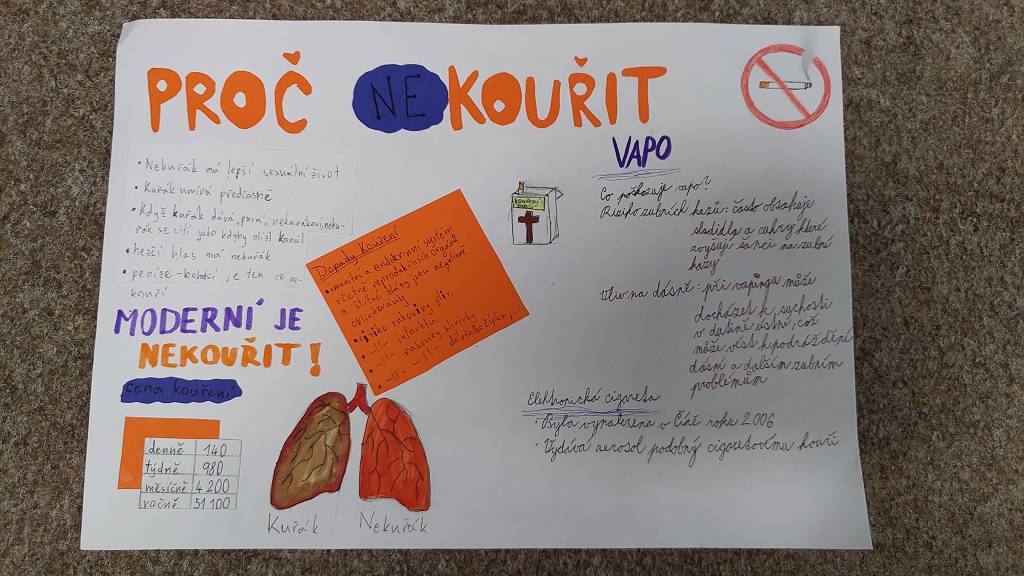 PROČ NEKOUŘIT
• Nekuřák má lepší sexuální život
• Kuřák umírá předčasně
• Když kuřák dává pusu nekuřákovi, neku-
řák se cítí jako kdyby olízl kanál
• hezčí hlas má nekuřák
• peníze - boháči je ten co ne-
kouří
MODERNÍ JE
NEKOUŘIT!
cena kouření
denně 140
týdně 980
měsíčně 4 200
ročně 51 100
Dopady kouření
• imunitní a endokrinní systém
včetně reprodukčních orgánů
a štítné žlázy jsou negativně
ovlivňovány
• riziko rakoviny plic
• -||- infarktu
• -||- rakoviny slinivky
• -||- -||- děložního čípku
Kuřák
Nekuřák
KOUŘENÍ
ZABÍJÍ
VAPO
Co poškozuje vapo?
Riziko zubních kazů: často obsahuje
sladidla a cukry, které
zvyšují šanci na zubní
kazy
Vliv na dásně: při vapingu může
docházet k suchosti
v dutině ústní, což
může vést k podráždění
dásní a dalším zubním
problémům
Elektronická cigareta
• Byla vynalezena v Číně roku 2006
• Vydává aerosol podobný cigaretovému kouři